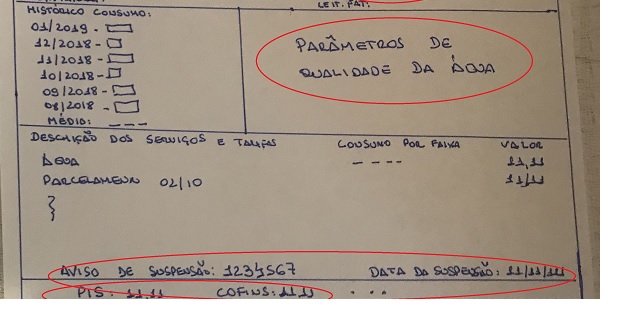 LEIT. FAT:
HISTÓRICO CONSUMO:
01/2019 -
12/2018 -
11/2018 -
10/2018 -
09/2018 -
08/2018 -
MÉDIO: - - -
PARÂMETROS DE
QUALIDADE DA ÁGUA
DESCRIÇÃO DOS SERVIÇOS E TARIFAS CONSUMO POR FAIXA VALOR
ÁGUA - - - - 11,11
PARCELAMENTO 02/10 11,11
AVISO DE SUSPENSÃO: 1234567 DATA DA SUSPENSÃO: 11/11/11
PIS: 11,11 COFINS: 11,11 . . .